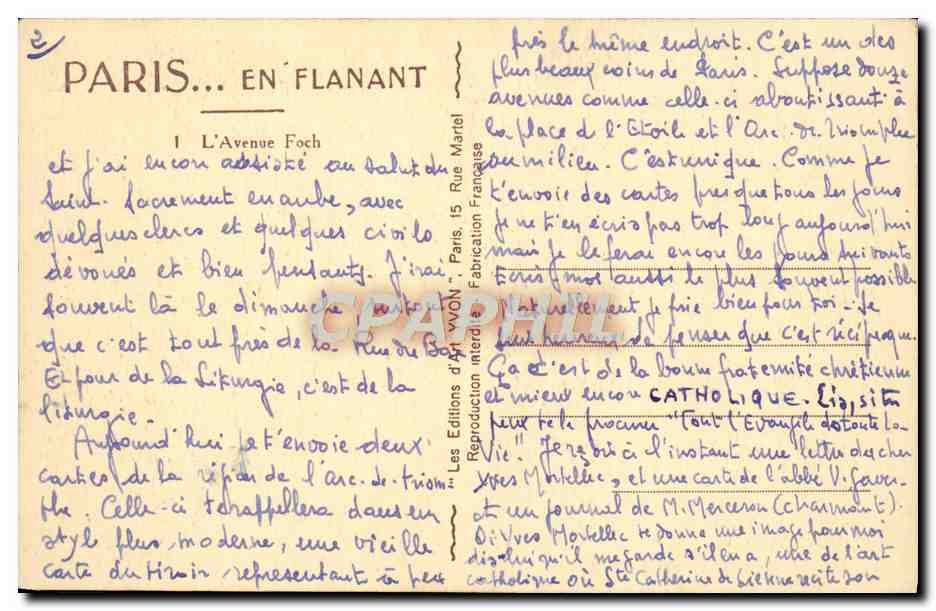 2
PARIS... EN FLANANT
1 L'Avenue Foch
et j'ai encore assisté au salut du
Saint-Sacrement en aube, avec
quelques clercs et quelques civils
dévoués et bien pensants. J'irai
souvent là le dimanche surtout
que c'est tout près de la Rue du Bac
Et pour de la Liturgie, c'est de la
liturgie.
Aujourd'hui je t'envoie deux
cartes de la région de l'Arc-de-triom
phe. Celle-ci te rappellera dans un
style plus moderne, une vieille
carte du tiroir representant à peu
"Les Editions d'Art YVON", Paris, 15 Rue Martel
Reproduction interdite Fabrication Française
près le même endroit. C'est un des
plus beaux coins de Paris. Suppose douze
avenues comme celle-ci aboutissant à
la place de l'Etoile et l'Arc-de-Triomphe
au milieu. C'est unique. Comme je
t'envoie des cartes presque tous les jours
je ne t'en écris pas trop long aujourd'hui
mais je le ferai encore les jours suivants
Ecris moi aussi le plus souvent possible
Naturellement je prie bien pour toi. Je
suis heureux de penser que c'est réciproque.
Ça c'est de la bonne fraternité chrétienne
et mieux encore CATHOLIQUE. Lis, si tu
peux te le procurer "Tout l'Evangile dans toute la
Vie". Je reçois ici à l'instant une lettre du cher
Yves Mortellec, et une carte de l'abbé V.
et un journal de M. Merceron (charmant).
Si Yves Mortellec te donne une image pour moi
dis-lui qu'il me garde s'il en a, une de l'art
catholique où Ste Catherine de Sienne récite son
CPAPHIL